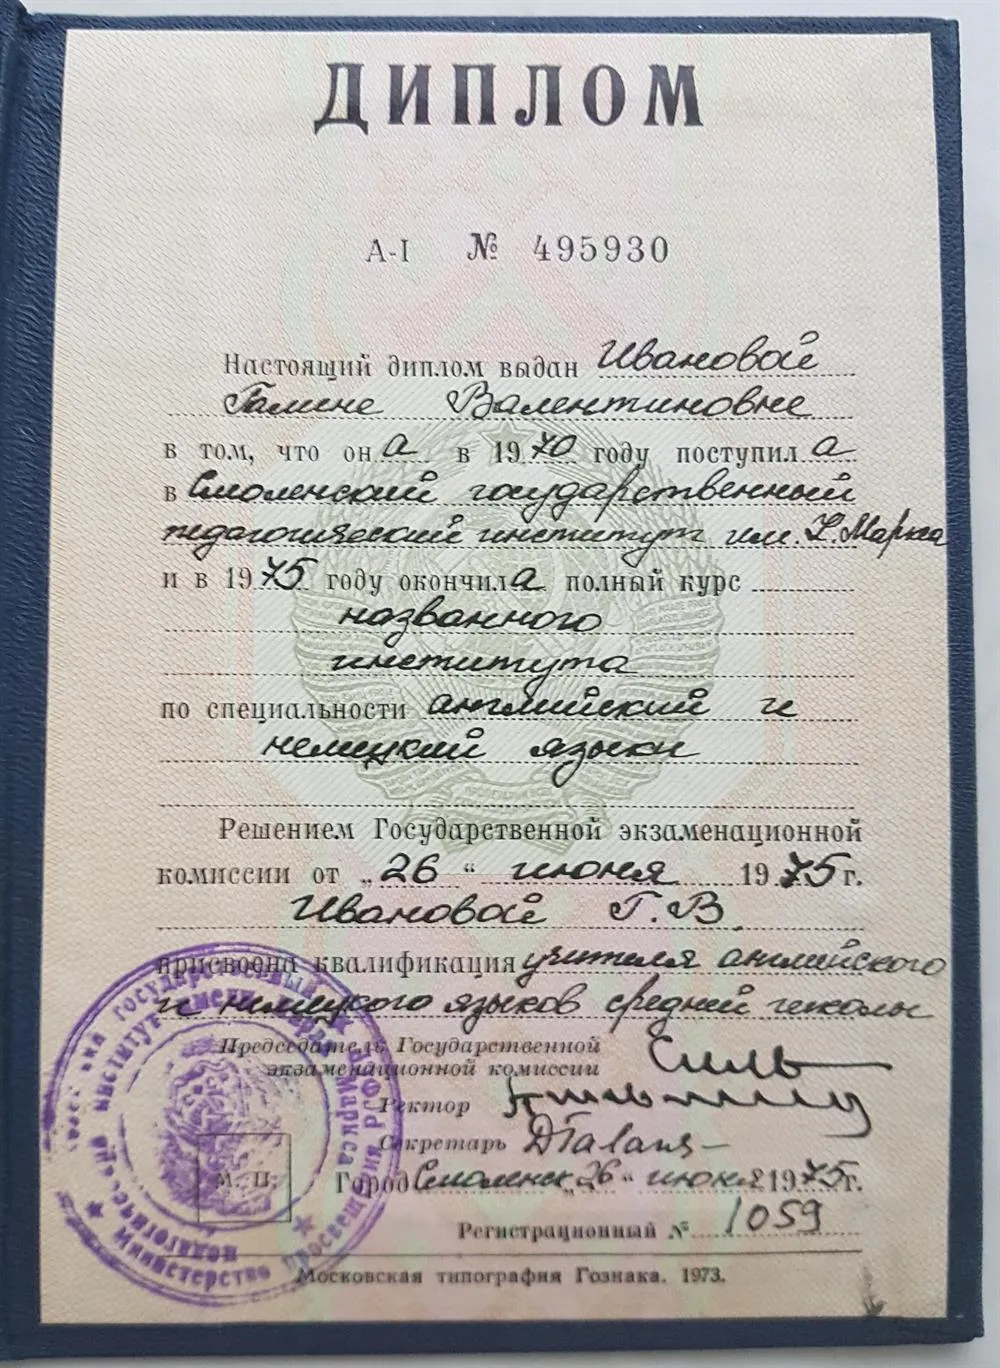 ДИПЛОМ
А-I № 495930
Настоящий диплом выдан Ивановой
Галине Валентиновне
в том, что он а в 1970 году поступил а
в Смоленский государственный
педагогический институт им. К. Маркса
и в 1975 году окончил а полный курс
названного
института
по специальности английский и
немецкий языки
Решением Государственной экзаменационной
комиссии от „26“ июня 1975 г.
Ивановой Г. В.
присвоена квалификация учителя английского
и немецкого языков средней школы
Председатель Государственной
экзаменационной комиссии
Ректор
Секретарь
М. П.
Город Смоленск „26“ июня 1975 г.
Регистрационный № 1059
Московская типография Гознака. 1973.
Министерство просвещения РСФСР
институт имени Карла Маркса